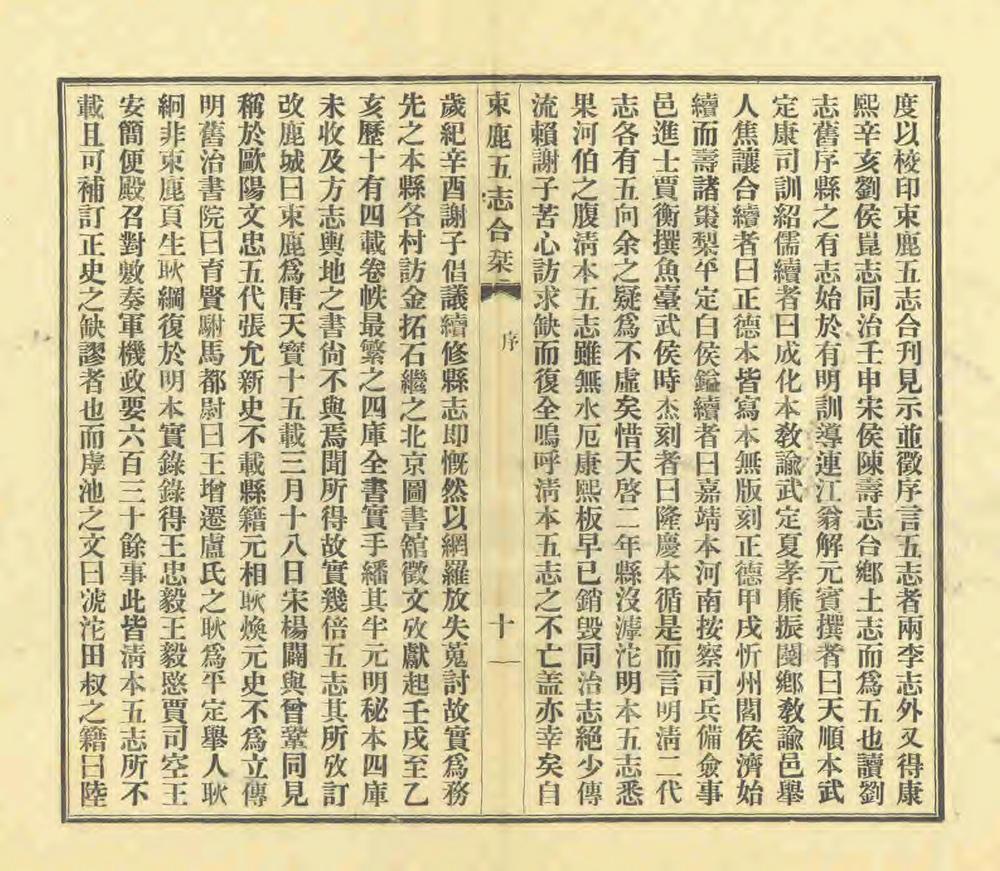 度以椄印束鹿五志合刊見示並徵序言五志者兩李志外又得康
熙辛亥劉侯崑志同治壬申宋侯陳壽志台鄉土志而爲五也讀劉
志舊序縣之有志始於有明訓導連江翁解元賓撰者曰天順本武
定康司訓紹儒續者曰成化本敎諭武定夏孝廉振閿鄉敎諭邑舉
人焦讓合續者曰正德本皆寫本無版刻正德甲戌忻州閻侯濟始
續而壽諸棗棃平定白侯鎰續者曰嘉靖本河南按察司兵備僉事
邑進士賈衡撰魚臺武侯時杰刻者曰隆慶本循是而言明淸二代
志各有五向余之疑爲不虛矣惜天啓二年縣沒滹沱明本五志悉
果河伯之腹淸本五志雖無水厄康熙板早已銷毀同治志絕少傳
流賴謝子苦心訪求缺而復全嗚呼淸本五志之不亡盖亦幸矣自
束鹿五志合栞
序
十一
歲紀辛酉謝子倡議續修縣志即慨然以網羅放失蒐討故實爲務
先之本縣各村訪金拓石繼之北京圖書舘徵文攷獻起壬戌至乙
亥歷十有四載卷帙最繁之四庫全書實手繙其半元明秘本四庫
未收及方志輿地之書尙不與焉聞所得故實幾倍五志其所攷訂
改鹿城曰束鹿爲唐天寶十五載三月十八日宋楊闢與曾鞏同見
稱於歐陽文忠五代張允新史不載縣籍元相耿煥元史不爲立傳
明舊治書院曰育賢駙馬都尉曰王增遷盧氏之耿爲平定舉人耿
絅非束鹿貢生耿綱復於明本實錄錄得王忠毅王毅愍賈司空王
安簡便殿召對敷奏軍機政要六百三十餘事此皆淸本五志所不
載且可補訂正史之缺謬者也而虖池之文曰淲沱田叔之籍曰陸